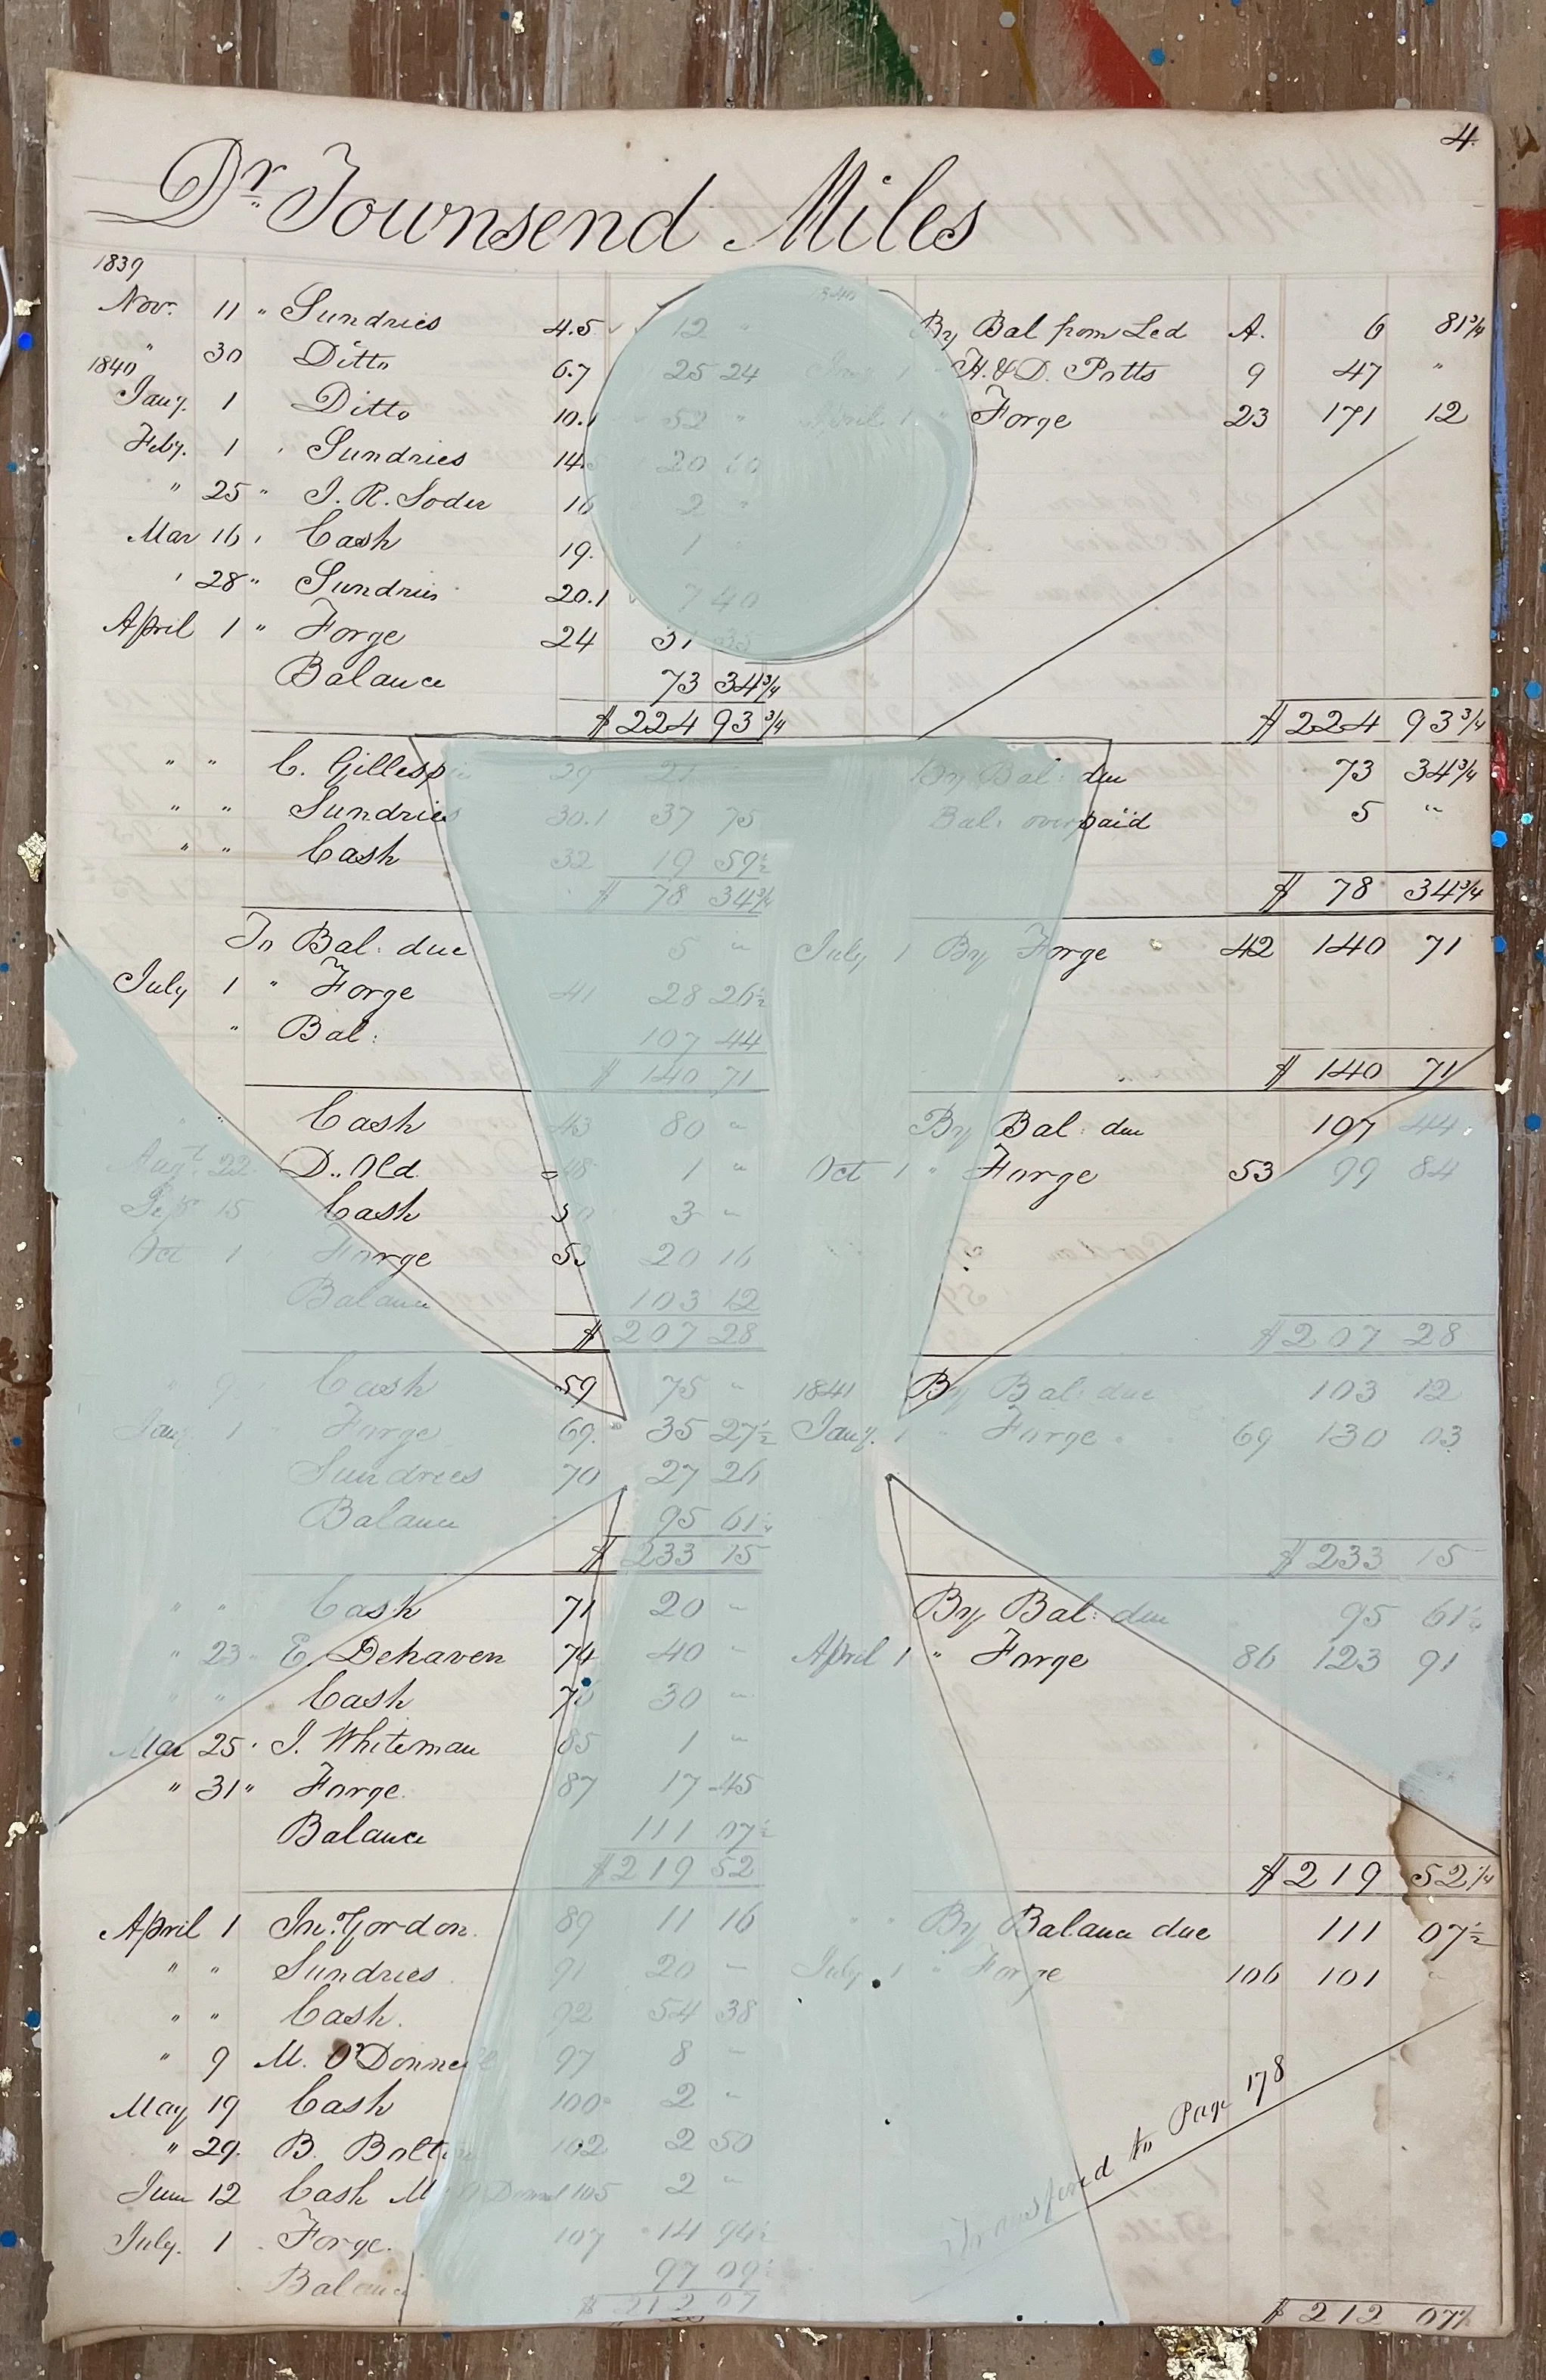 4.
Dr. Townsend Miles
1839
Nov. 11 " Sundries 4.5 12 " By Bal from Led A. 6 81 3/4
" 30 Ditto 6.7 25 24 " H. & D. Potts 9 47 "
1840
Jany. 1 Ditto 10. 52 " April 1 " Forge 23 171 12
Feby. 1 " Sundries 14 20
" 25 " J. R. Soder 16 2 "
Mar 16 " Cash 19. 1 "
" 28 " Sundries 20.1 7 40
April 1 " Forge 24 31
Balance 73 34 3/4
$ 224 93 3/4 $ 224 93 3/4
" " C. Gillespie 29 21 By Bal: due 73 34 3/4
" " Sundries 30.1 37 75 Bal: overpaid 5 "
" " Cash 32 19 59 1/2
$ 78 34 3/4 $ 78 34 3/4
To Bal: due 5 " July 1 By Forge 42 140 71
July 1 " Forge 41 28 26 1/2
" Bal: 107 44
$ 140 71 $ 140 71
Cash 43 80 " By Bal: due 107 44
Augt. 22 D. Old 48 1 " Oct 1 " Forge 53 99 84
Sep 15 Cash 50 3 "
Oct 1 Forge 53 20 16
Balance 103 12
$ 207 28 $ 207 28
" 9 Cash 59 75 " 1841 By Bal: due 103 12
Jany. 1 " Forge 69. 35 27 1/2 Jany. 1 " Forge 69 130 03
Sundries 70 27 26
Balance 95 61 1/4
$ 233 15 $ 233 15
" " Cash 71 20 " By Bal: due 95 61 1/2
" 23 " E. Dehaven 74 40 " April 1 " Forge 86 123 91
" " Cash 30 "
Mar 25 " J. Whiteman 85 1 "
" 31 " Forge. 87 17 45
Balance 111 07 1/2
$ 219 52 $ 219 52 1/4
April 1 Jno. Gordon. 89 11 16 " " By Balance due 111 07 1/2
" " Sundries. 91 20 " July 1 " Forge 106 101 "
" " Cash. 92 54 38
" 9 M. O'Donnell 97 8 "
May 19 Cash 100 2 "
" 29. B. Bolton 102 2 50
June 12 Cash M O Donnel 105 2 "
July. 1 " Forge. 107 14 94 1/2
Balance 97 09 1/2
$ 212 07 $ 212 07 1/2
Transfered to Page 178